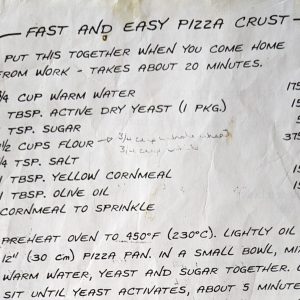 FAST AND EASY PIZZA CRUST
PUT THIS TOGETHER WHEN YOU COME HOME
FROM WORK - TAKES ABOUT 20 MINUTES.
3/4 CUP WARM WATER 175
TBSP. ACTIVE DRY YEAST (1 PKG.) 15
TSP. SUGAR
1/2 CUPS FLOUR → 3/4 cup whole wheat 375
3/4 cup white
TSP. SALT
TBSP. YELLOW CORNMEAL 15
TBSP. OLIVE OIL 15
CORNMEAL TO SPRINKLE
PREHEAT OVEN TO 450°F (230°C). LIGHTLY OIL
12" (30 cm) PIZZA PAN. IN A SMALL BOWL, MIX
WARM WATER, YEAST AND SUGAR TOGETHER.
SIT UNTIL YEAST ACTIVATES, ABOUT 5 MINUTE